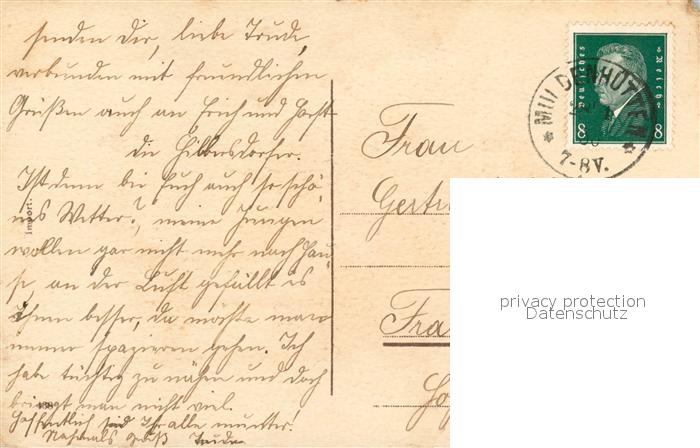 senden Dir, liebe Trude,
verbunden mit freundlichen
Grüßen auch an Erich und Horst
die Hilbersdorfer.
Ist denn bei Euch auch so schö-
nes Wetter?, meine Jungen
wollen gar nicht mehr nach Hau-
se, an der Luft gefällt es
Ihnen besser, da möchte man
immer spazieren gehen. Ich
habe tüchtig zu nähen und doch
bringt man nicht viel.
Hoffentlich seid Ihr alle munter!
Nochmals Gruß Trude
Import.
438
Deutsches Reich
8 8
7-8V.
Frau
Gertr
Fra
privacy protection
Datenschutz